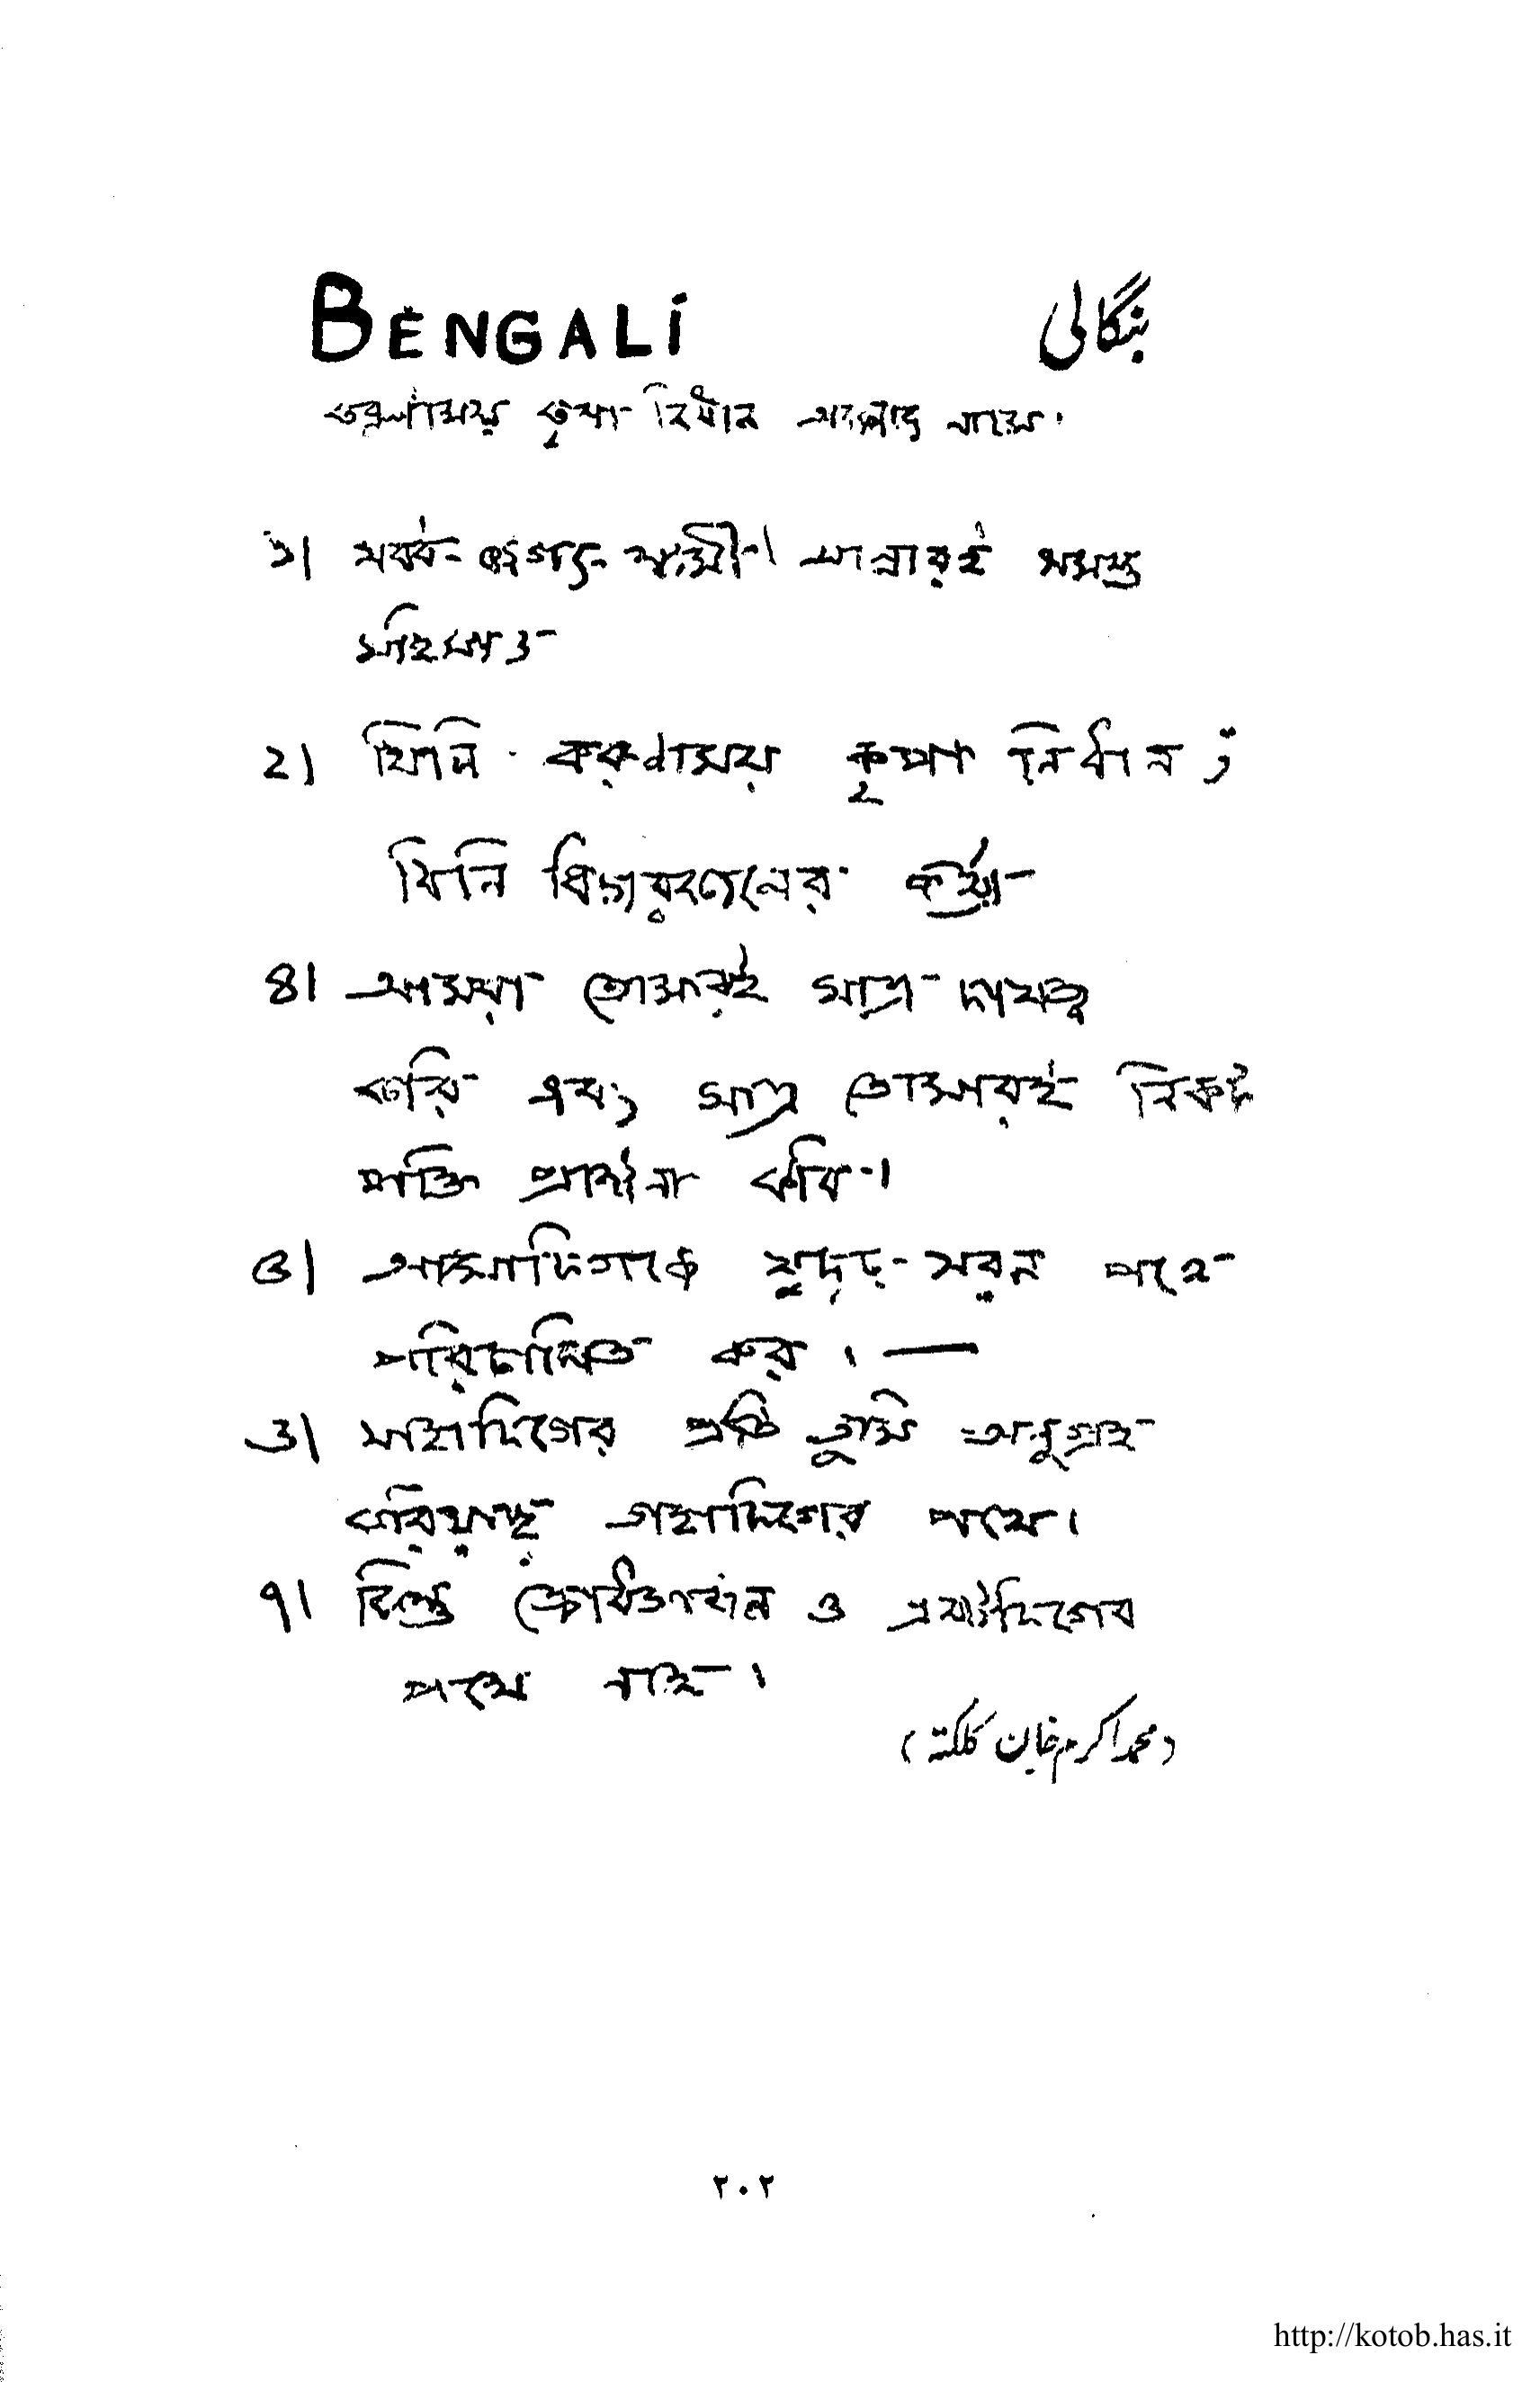 BENGALi بنگالی
করুণাময় কৃপা নিধান আল্লাহর নামে।
১। সর্ব্ব-জগৎ-স্বামী। আল্লারই সমস্ত
মহিমা
২। যিনি করুণাময় কৃপা নিধান,
যিনি বিচার কর্ত্তা
৪। আমরা তোমারই মাত্র দাসত্ব
করি এবং মাত্র তোমারই নিকট
শক্তি প্রার্থনা করি।
৫। আমাদিগকে সুদৃঢ় সরল পথে
পরিচালিত কর। —
৬। যাহাদিগের প্রতি তুমি অনুগ্রহ
করিয়াছ তাহাদিগের পথে।
৭। কিন্তু ও পথভ্রষ্টদিগের
পথে নহে।
(محمد اکرم خان کلکتہ)
۲۰۲
http://kotob.has.it